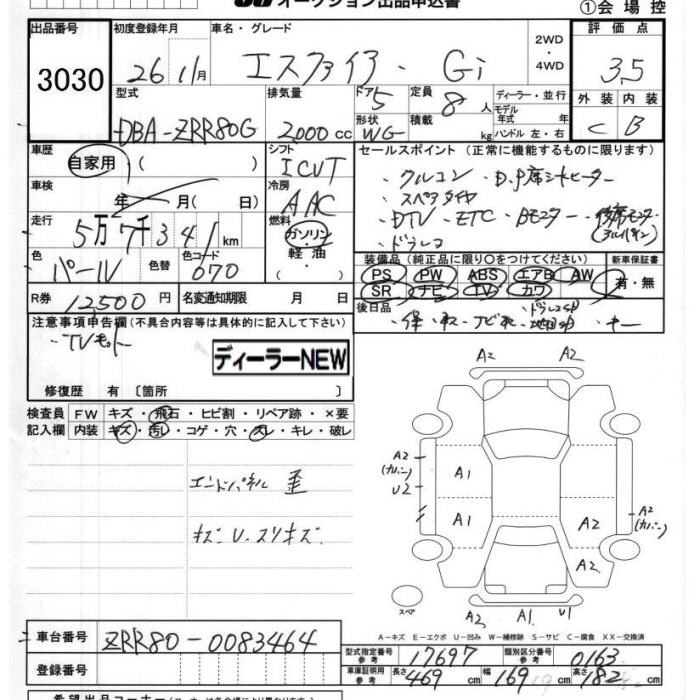 オークション出品申込書
①会場控
出品番号 初度登録年月 車名・グレード 2WD・4WD 評価点
3030 26 11月 エスクァイア・Gi 3.5
型式 排気量 ドア 5 定員 8人 ディーラー・並行 外装 内装
モデル年式 年
DBA-ZRR80G 2,000cc 形状 WG 積載 kg ハンドル 左・右 C B
車歴 自家用 ( ) シフト ICVT セールスポイント(正常に機能するものに限ります)
・クルコン ・D.P席シートヒーター
車検 年 月( 日) 冷房 AAC ・スペアタイヤ
走行 5万7千341km 燃料 ガソリン・軽油・( ) ・DTV ・ETC ・Bモニター ・後席モニター
(アルパイン)
・ドラレコ
色 パール 色替 色コード 070
装備品(純正品に限り○をつけてください) 新車保証書
PS PW ABS エアB AW 有・無
SR ナビ TV カワ
R券 12,500円 名変通知期限 月 日
後日品 ・保・取・ナビ取・ドラレコSD・地図SD・キー
注意事項申告欄(不具合内容等は具体的に記入して下さい)
・TVキット
ディーラーNEW
修復歴 有〔箇所 〕
検査員 FW キズ・飛石・ヒビ割・リペア跡・×要
記入欄 内装 キズ・汚レ・コゲ・穴・スレ・キレ・破レ
エンドパネル 歪
キズ U. スリキズ
A2 A2
A2
(カバー)
U2
A1
A1
A2
A2
A2
(カバー)
スペア
A2 A1 U1
A-キズ E-エクボ U-凹み W-補修跡 S-サビ C-腐食 XX-交換済
車台番号 ZRR80-0083464
型式指定番号 参考 17697 類別区分番号 参考 0163
登録番号
車庫証明用 参考 長さ 469cm 幅 169cm 高さ 182cm
希望出品コーナー